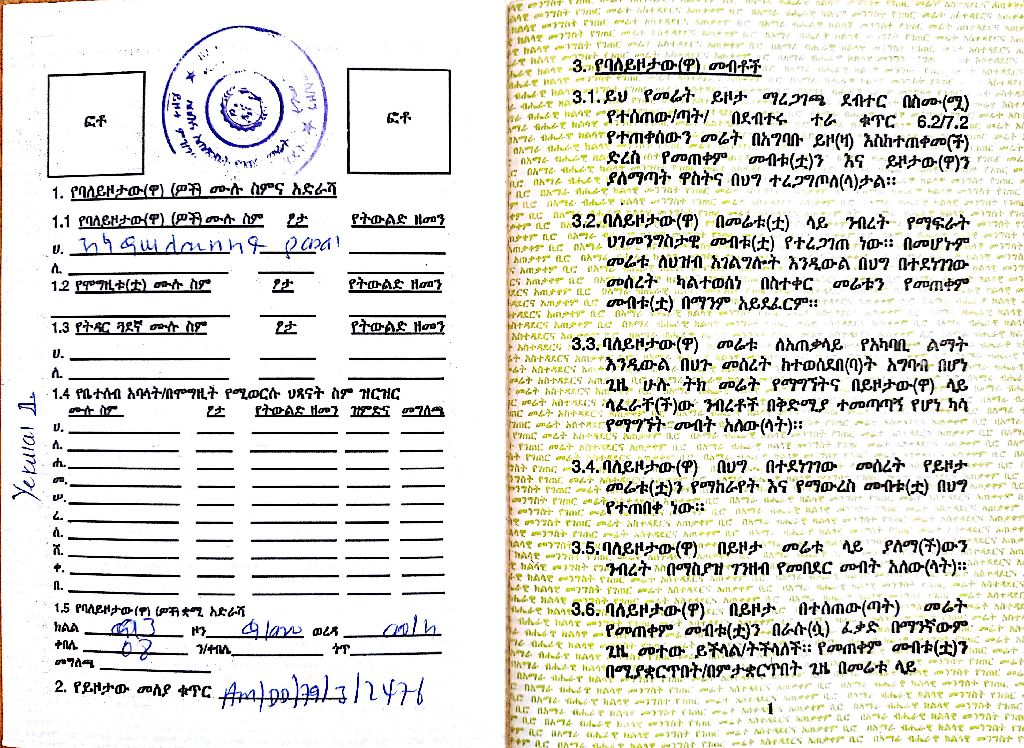 ፎቶ
ፎቶ
1. የባለይዞታው(ዋ) (ዎች) ሙሉ ስምና አድራሻ
1.1 የባለይዞታው(ዋ) (ዎች) ሙሉ ስም ፆታ የትውልድ ዘመን
ሀ.
ለ.
1.2 የሞግዚቱ(ቷ) ሙሉ ስም ፆታ የትውልድ ዘመን
1.3 የትዳር ጓደኛ ሙሉ ስም ፆታ የትውልድ ዘመን
ሀ.
ለ.
1.4 የቤተሰብ አባላት/በሞግዚት የሚወርሱ ህጻናት ስም ዝርዝር
ሙሉ ስም ፆታ የትውልድ ዘመን ዝምድና መግለጫ
ሀ.
ለ.
ሐ.
መ.
ሠ.
ረ.
ሰ.
ሸ.
ቀ.
በ.
1.5 የባለይዞታው(ዋ) (ዎች) ቋሚ አድራሻ
ክልል ዞን ወረዳ
ቀበሌ 08 ን/ቀበሌ ጎጥ
መግለጫ
2. የይዞታው መለያ ቁጥር Am/DD/79/3/2476
3. የባለይዞታው(ዋ) መብቶች
3.1. ይህ የመሬት ይዞታ ማረጋገጫ ደብተር በስሙ(ሟ)
የተሰጠው/ጣት/ በደብተሩ ተራ ቁጥር 6.2/7.2
የተጠቀሰውን መሬት በአግባቡ ይዞ(ዛ) እስከተጠቀመ(ች)
ድረስ የመጠቀም መብቱ(ቷ)ን እና ይዞታው(ዋ)ን
ያለማጣት ዋስትና በህግ ተረጋግጦለ(ላ)ታል።
3.2. ባለይዞታው(ዋ) በመሬቱ(ቷ) ላይ ንብረት የማፍራት
ህገመንግስታዊ መብቱ(ቷ) የተረጋገጠ ነው። በመሆኑም
መሬቱ ለህዝብ አገልግሎት እንዲውል በህግ በተደነገገው
መሰረት ካልተወሰነ በስተቀር መሬቱን የመጠቀም
መብቱ(ቷ) በማንም አይደፈርም።
3.3. ባለይዞታው(ዋ) መሬቱ ለአጠቃላይ የአካባቢ ልማት
እንዲውል በህጉ መሰረት ከተወሰደበ(ባ)ት አግባብ በሆነ
ጊዜ ሁሉ ትክ መሬት የማግኘትና በይዞታው(ዋ) ላይ
ላፈራቸ(ች)ው ንብረቶች በቅድሚያ ተመጣጣኝ የሆነ ካሳ
የማግኘት መብት አለው(ላት)።
3.4. ባለይዞታው(ዋ) በህግ በተደነገገው መሰረት የይዞታ
መሬቱ(ቷ)ን የማከራየት እና የማውረስ መብቱ(ቷ) በህግ
የተጠበቀ ነው።
3.5. ባለይዞታው(ዋ) በይዞታ መሬቱ ላይ ያለማ(ች)ውን
ንብረት በማስያዝ ገንዘብ የመበደር መብት አለው(ላት)።
3.6. ባለይዞታው(ዋ) በይዞታ በተሰጠው(ጣት) መሬት
የመጠቀም መብቱ(ቷ)ን በራሱ(ሷ) ፈቃድ በማንኛውም
ጊዜ መተው ይችላል/ትችላለች። የመጠቀም መብቱ(ቷ)ን
በሚያቋርጥበት/በምታቋርጥበት ጊዜ በመሬቱ ላይ
1